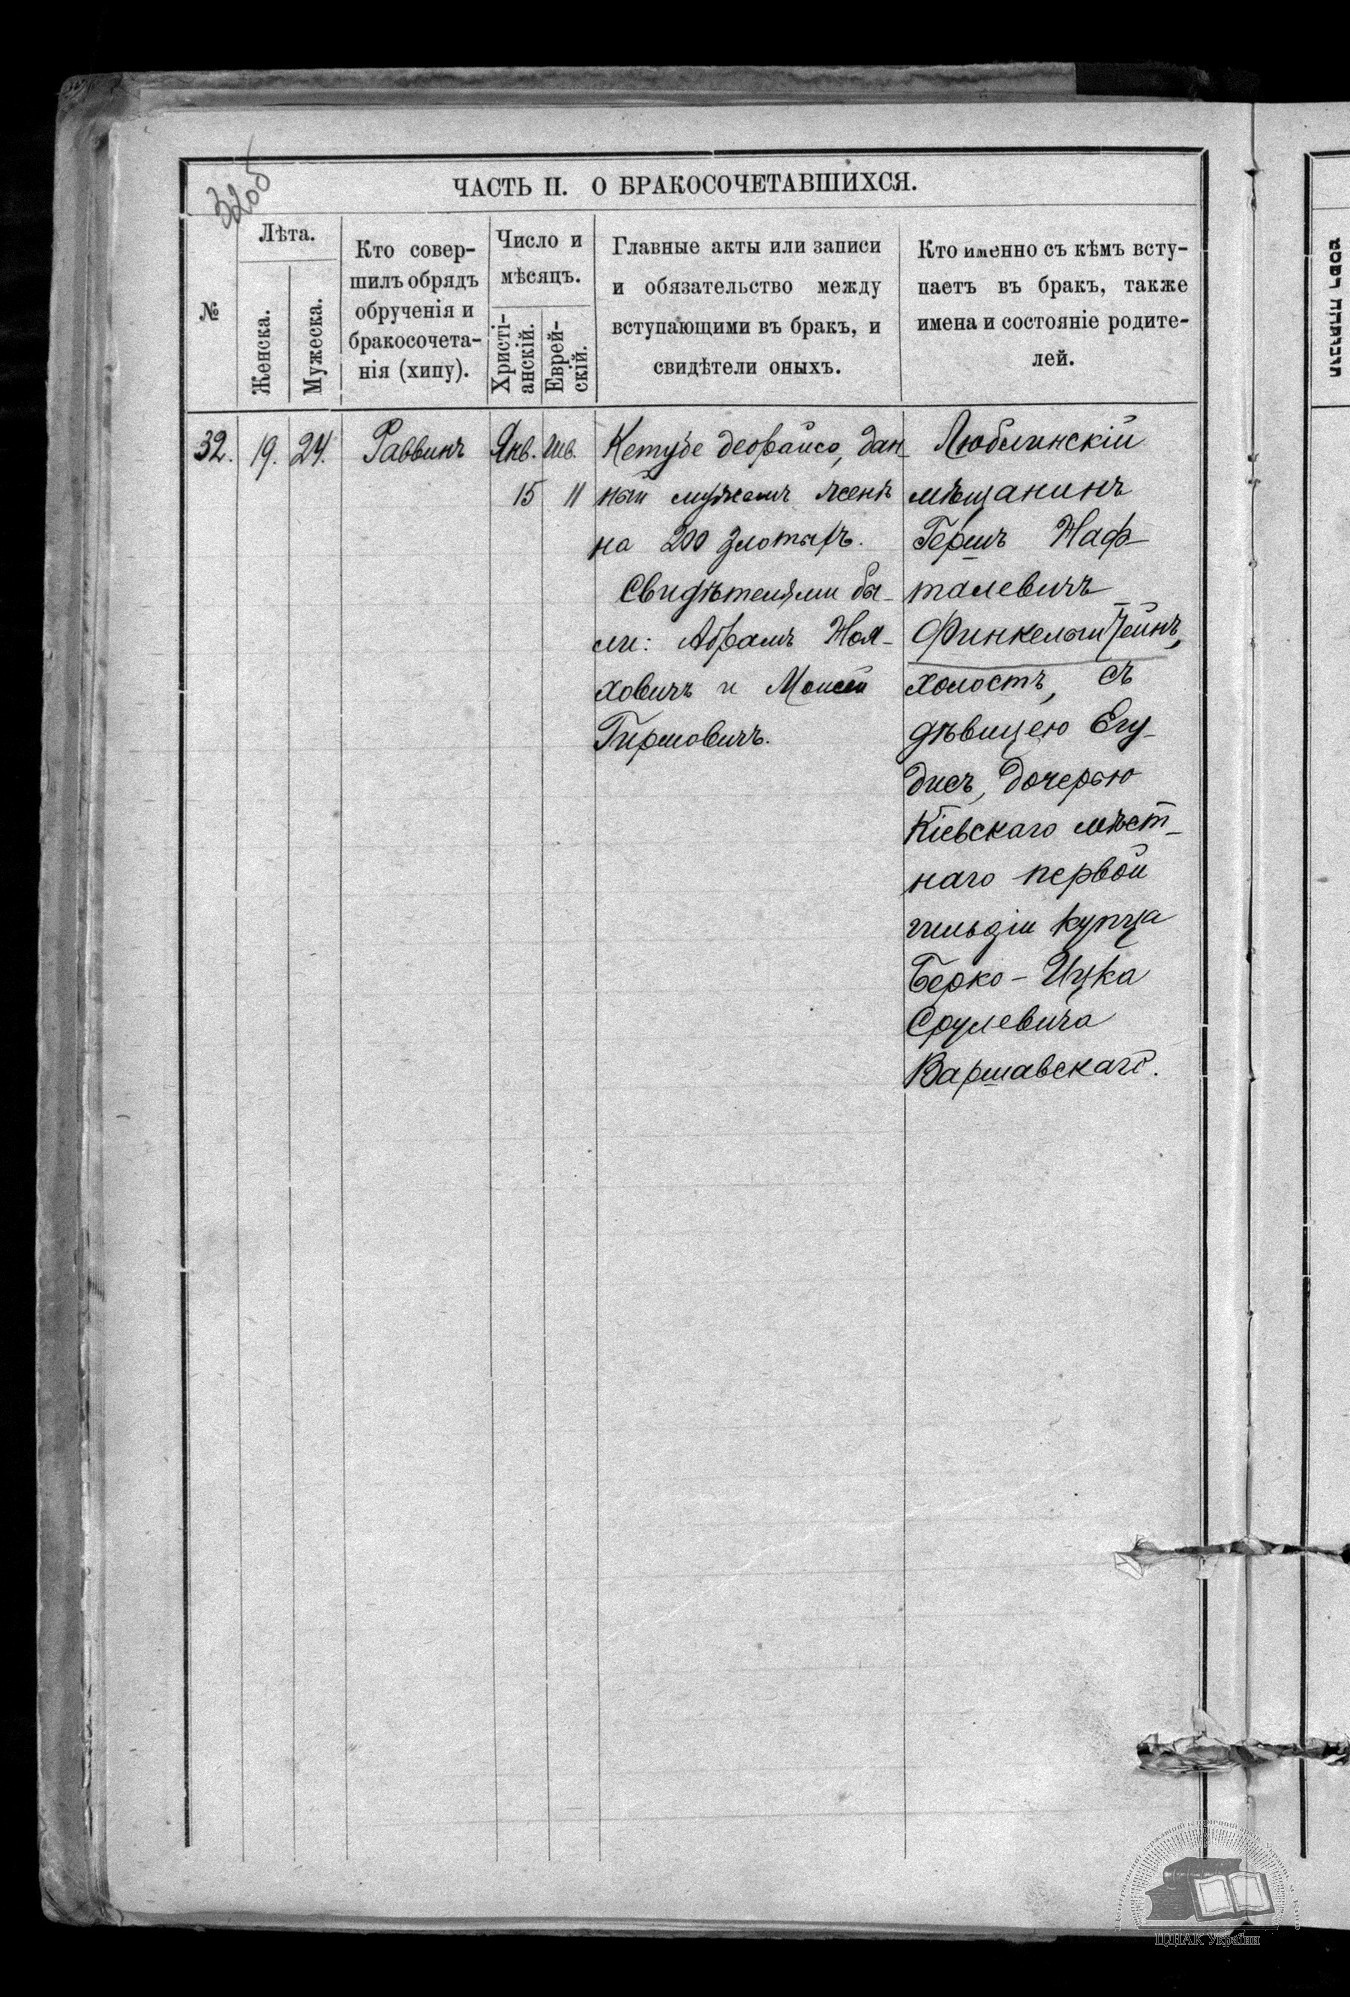 320б
ЧАСТЬ II. О БРАКОСОЧЕТАВШИХСЯ.
№
Лѣта.
Женска.
Мужеска.
Кто совер-
шилъ обрядъ
обрученія и
бракосочета-
нія (хипу).
Число и
мѣсяцъ.
Христі-
анскій.
Еврей-
скій.
Главные акты или записи
и обязательство между
вступающими въ бракъ, и
свидѣтели оныхъ.
Кто именно съ кѣмъ всту-
паетъ въ бракъ, также
имена и состояніе родите-
лей.
32.
19.
24.
Раввинъ
Янв.
15
Шв.
11
Кетубе деорайсо, дан-
ный мужемъ женѣ
на 200 злотыхъ.
Свидѣтелями бы-
ли: Абрамъ Ноя-
ховичъ и Моисей
Гиршовичъ.
Люблинскій
мѣщанинъ
Гершъ Наф-
талевичъ
Финкельштейнъ,
холостъ, съ
дѣвицею Егу-
дисъ, дочерью
Кіевскаго мѣст-
наго первой
гильдіи купца
Берко-Ицка
Срулевича
Варшавскаго.
ЦДІАК України